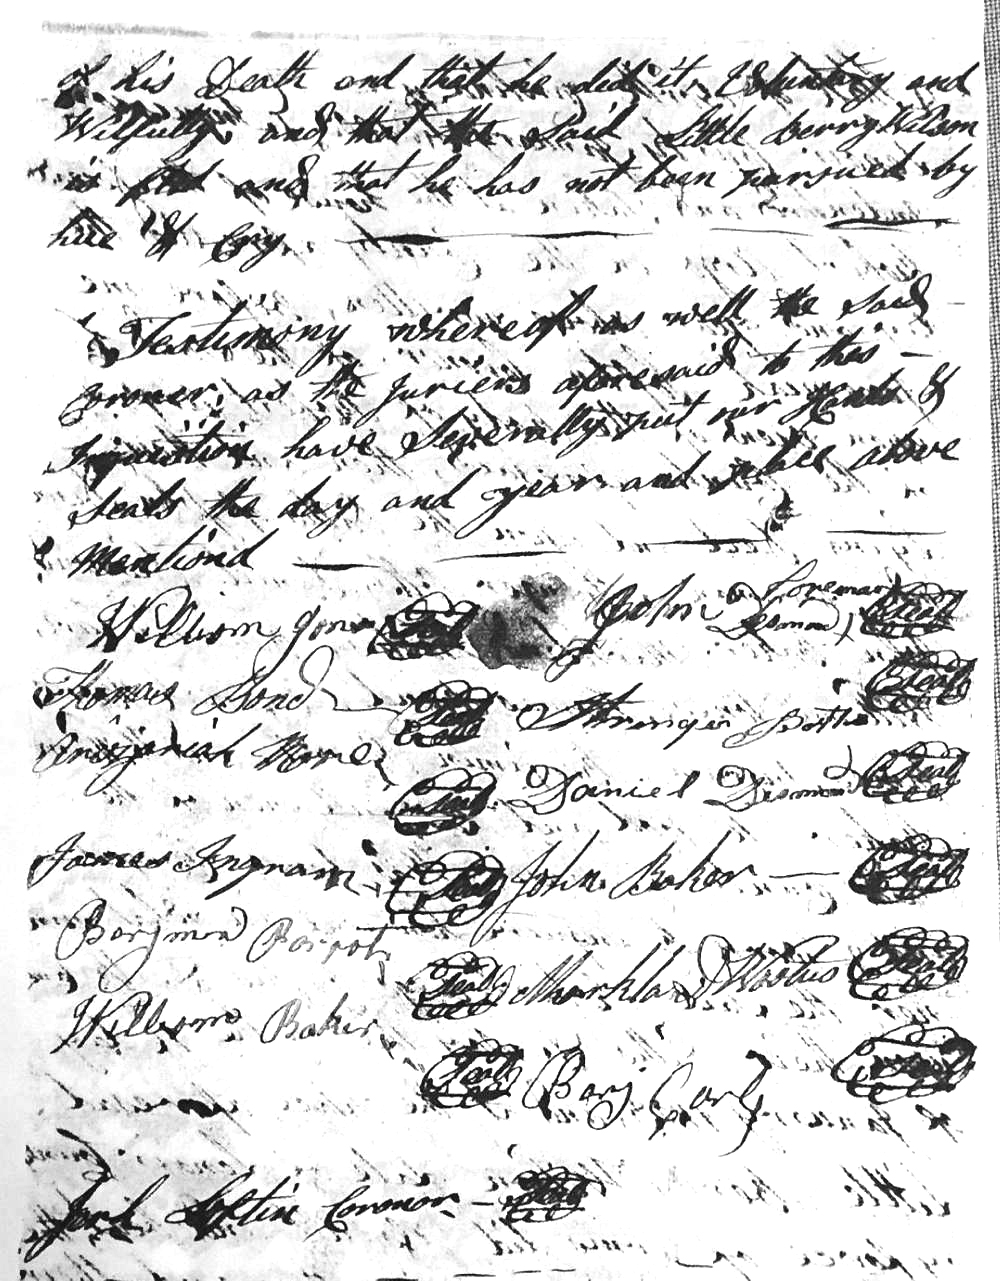 of his Death and that he did it Voluntary and
Wilfully and that the Said Little berry Wilson
is fled and that he has not been pursued by
hue & Cry
Testimony whereof as well the Said
Coroner, as the juriers aforesaid to this
Inquisition have Severally put our Hands &
Seals the day and year and place above
Mentiond
William Jones Seal John Desmond Foreman Seal
Thomas Bond Seal Stringer Seal
Seal Daniel Desmond Seal
James Ingram Seal John Baker Seal
Benjmen Seal Seal
William Baker Seal Benj Seal
Loftin Coronor Seal